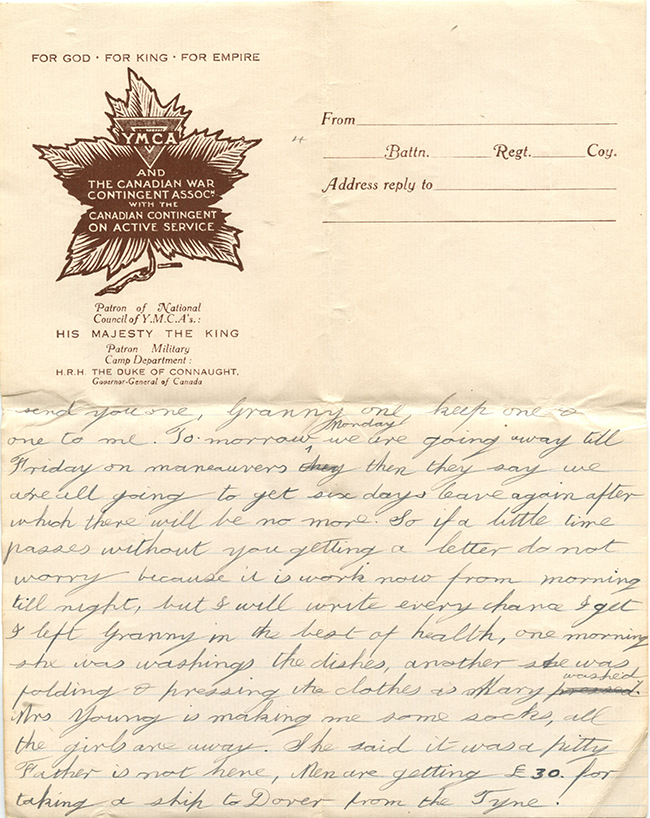 FOR GOD · FOR KING · FOR EMPIRE
YMCA
AND
THE CANADIAN WAR
CONTINGENT ASSOCN
WITH THE
CANADIAN CONTINGENT
ON ACTIVE SERVICE
Patron of National
Council of Y.M.C.A's.:
HIS MAJESTY THE KING
Patron Military
Camp Department:
H.R.H. THE DUKE OF CONNAUGHT,
Governor-General of Canada
From
Battn. Regt. Coy.
Address reply to
send you one, Granny one, keep one &
one to me. To-morrow Monday we are going away till
Friday on maneauvers they then they say we
are all going to get six days leave again after
which there will be no more. So if a little time
passes without you getting a letter do not
worry because it is work now from morning
till night, but I will write every chance I get
I left Granny in the best of health, one morning
she was washings the dishes, another she was
folding & pressing the clothes as Mary pressed washed.
Mrs Young is making me some socks, all
the girls are away. She said it was a pitty
Father is not here, Men are getting £30. for
taking a ship to Dover from the Tyne.